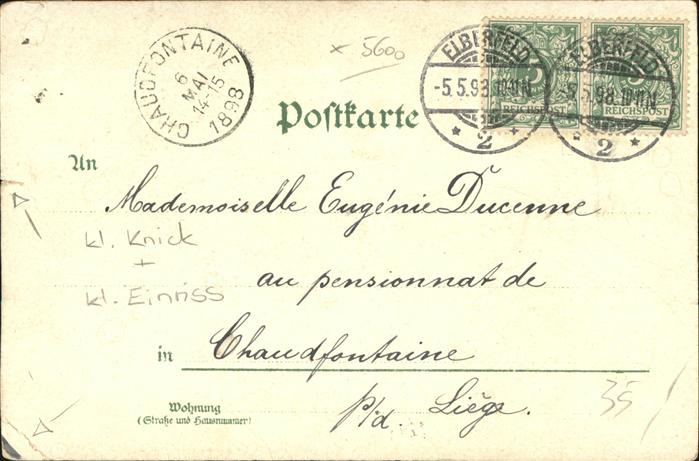 × 5600
CHAUDFONTAINE
6
MAI
14-15
1898
ELBERFELD
-5.5.98
* 2 *
ELBERFELD
5.98
* 2 *
5
REICHSPOST
REICHSPOST
Postkarte
An
Mademoiselle Eugénie Ducenne
kl. Knick
+
au pensionnat de
kl. Einriss
in Chaudfontaine
Wohnung
(Straße und Hausnummer)
p/d. Liège.
35/